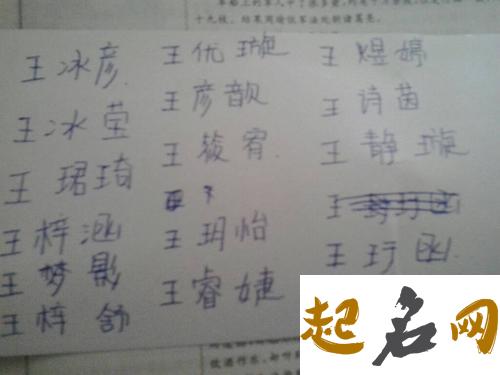 王冰彦
王冰莹
王珺琦
王梓涵
王梦影
王梓舒
王优璇
王彦歆
王筱宥
王玥怡
王睿婕
王煜婷
王诗茵
王静璇
王玗函
起名网